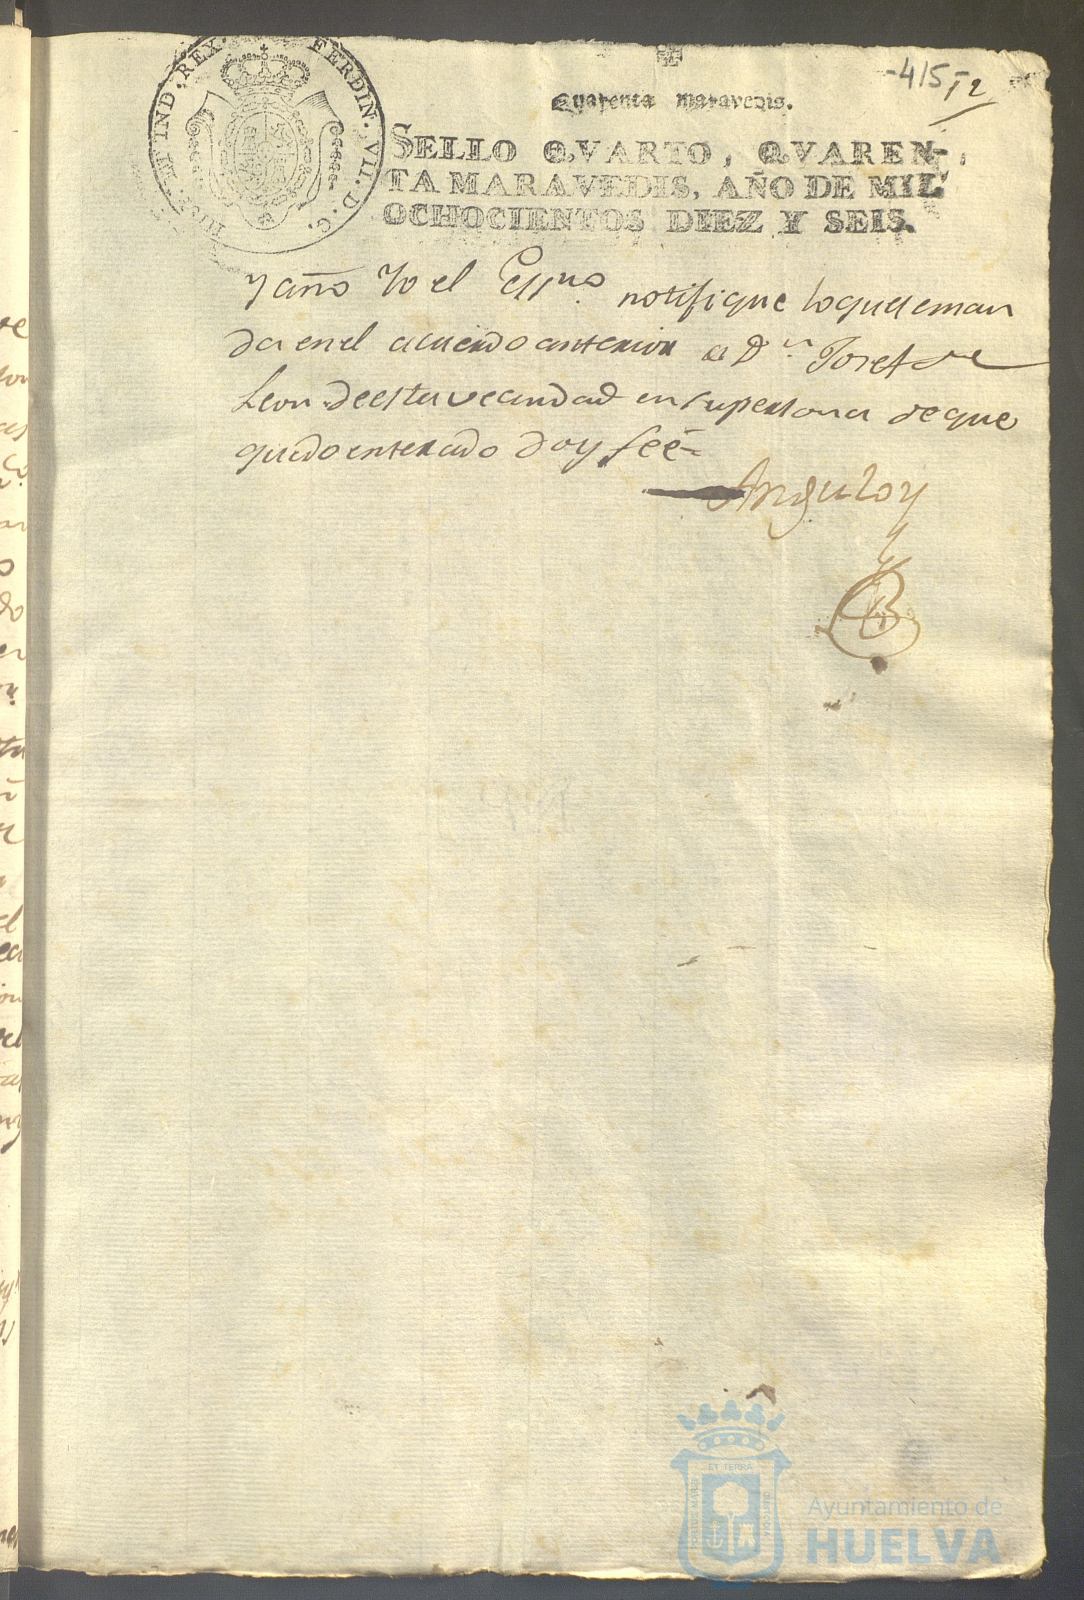 -415-
12
Quarenta maravedis.
HISP. ET IND. REX. FERDIN. VII. D. G.
SELLO QVARTO, QVAREN-
TA MARAVEDIS, AÑO DE MIL
OCHOCIENTOS DIEZ Y SEIS.
y año Yo el Essno notifique lo que se man
da en el acuerdo anterior a Dn Josef de
Leon de esta vecindad en su persona de que
quedo enterado doy feé=
Anguloy
ET TERRÆ
Ayuntamiento de
HUELVA